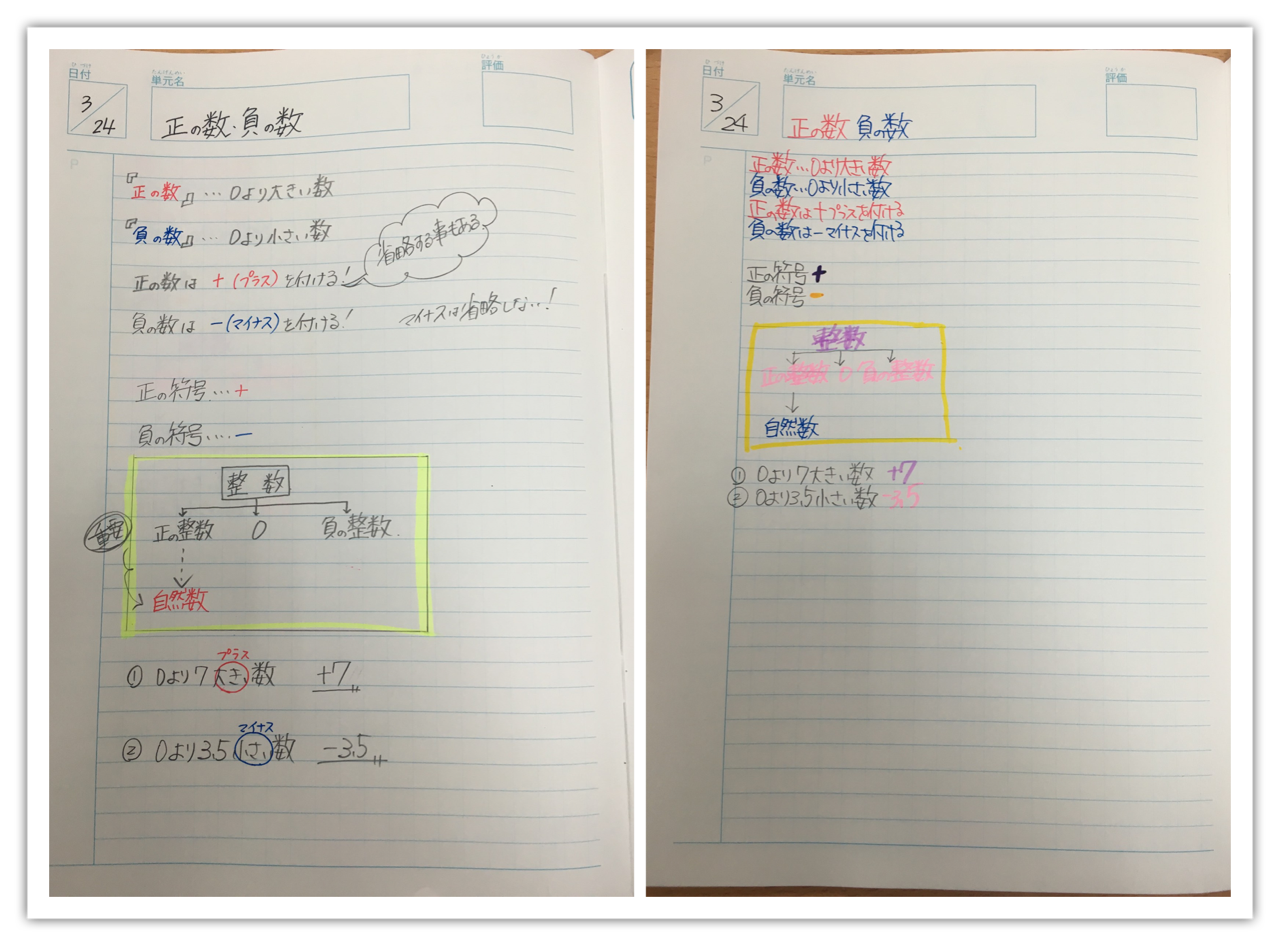 ひづけ
日付
たんげんめい
単元名
ひょうか
評価
3/24
正の数・負の数
P
『正の数』…0より大きい数
『負の数』…0より小さい数
省略する事もある。
正の数は +(プラス)を付ける!
負の数は -(マイナス)を付ける!
マイナスは省略しない!
正の符号…+
負の符号….-
整数
重要
正の整数 0 負の整数.
自然数
プラス
① 0より7大きい数 +7
マイナス
② 0より3.5小さい数 -3.5
ひづけ
日付
たんげんめい
単元名
ひょうか
評価
3/24
正の数 負の数
P
正の数…0より大きい数
負の数…0より小さい数
正の数は+プラスを付ける
負の数は-マイナスを付ける
正の符号+
負の符号-
整数
正の整数 0 負の整数
自然数
① 0より7大きい数 +7
② 0より3.5小さい数 -3.5